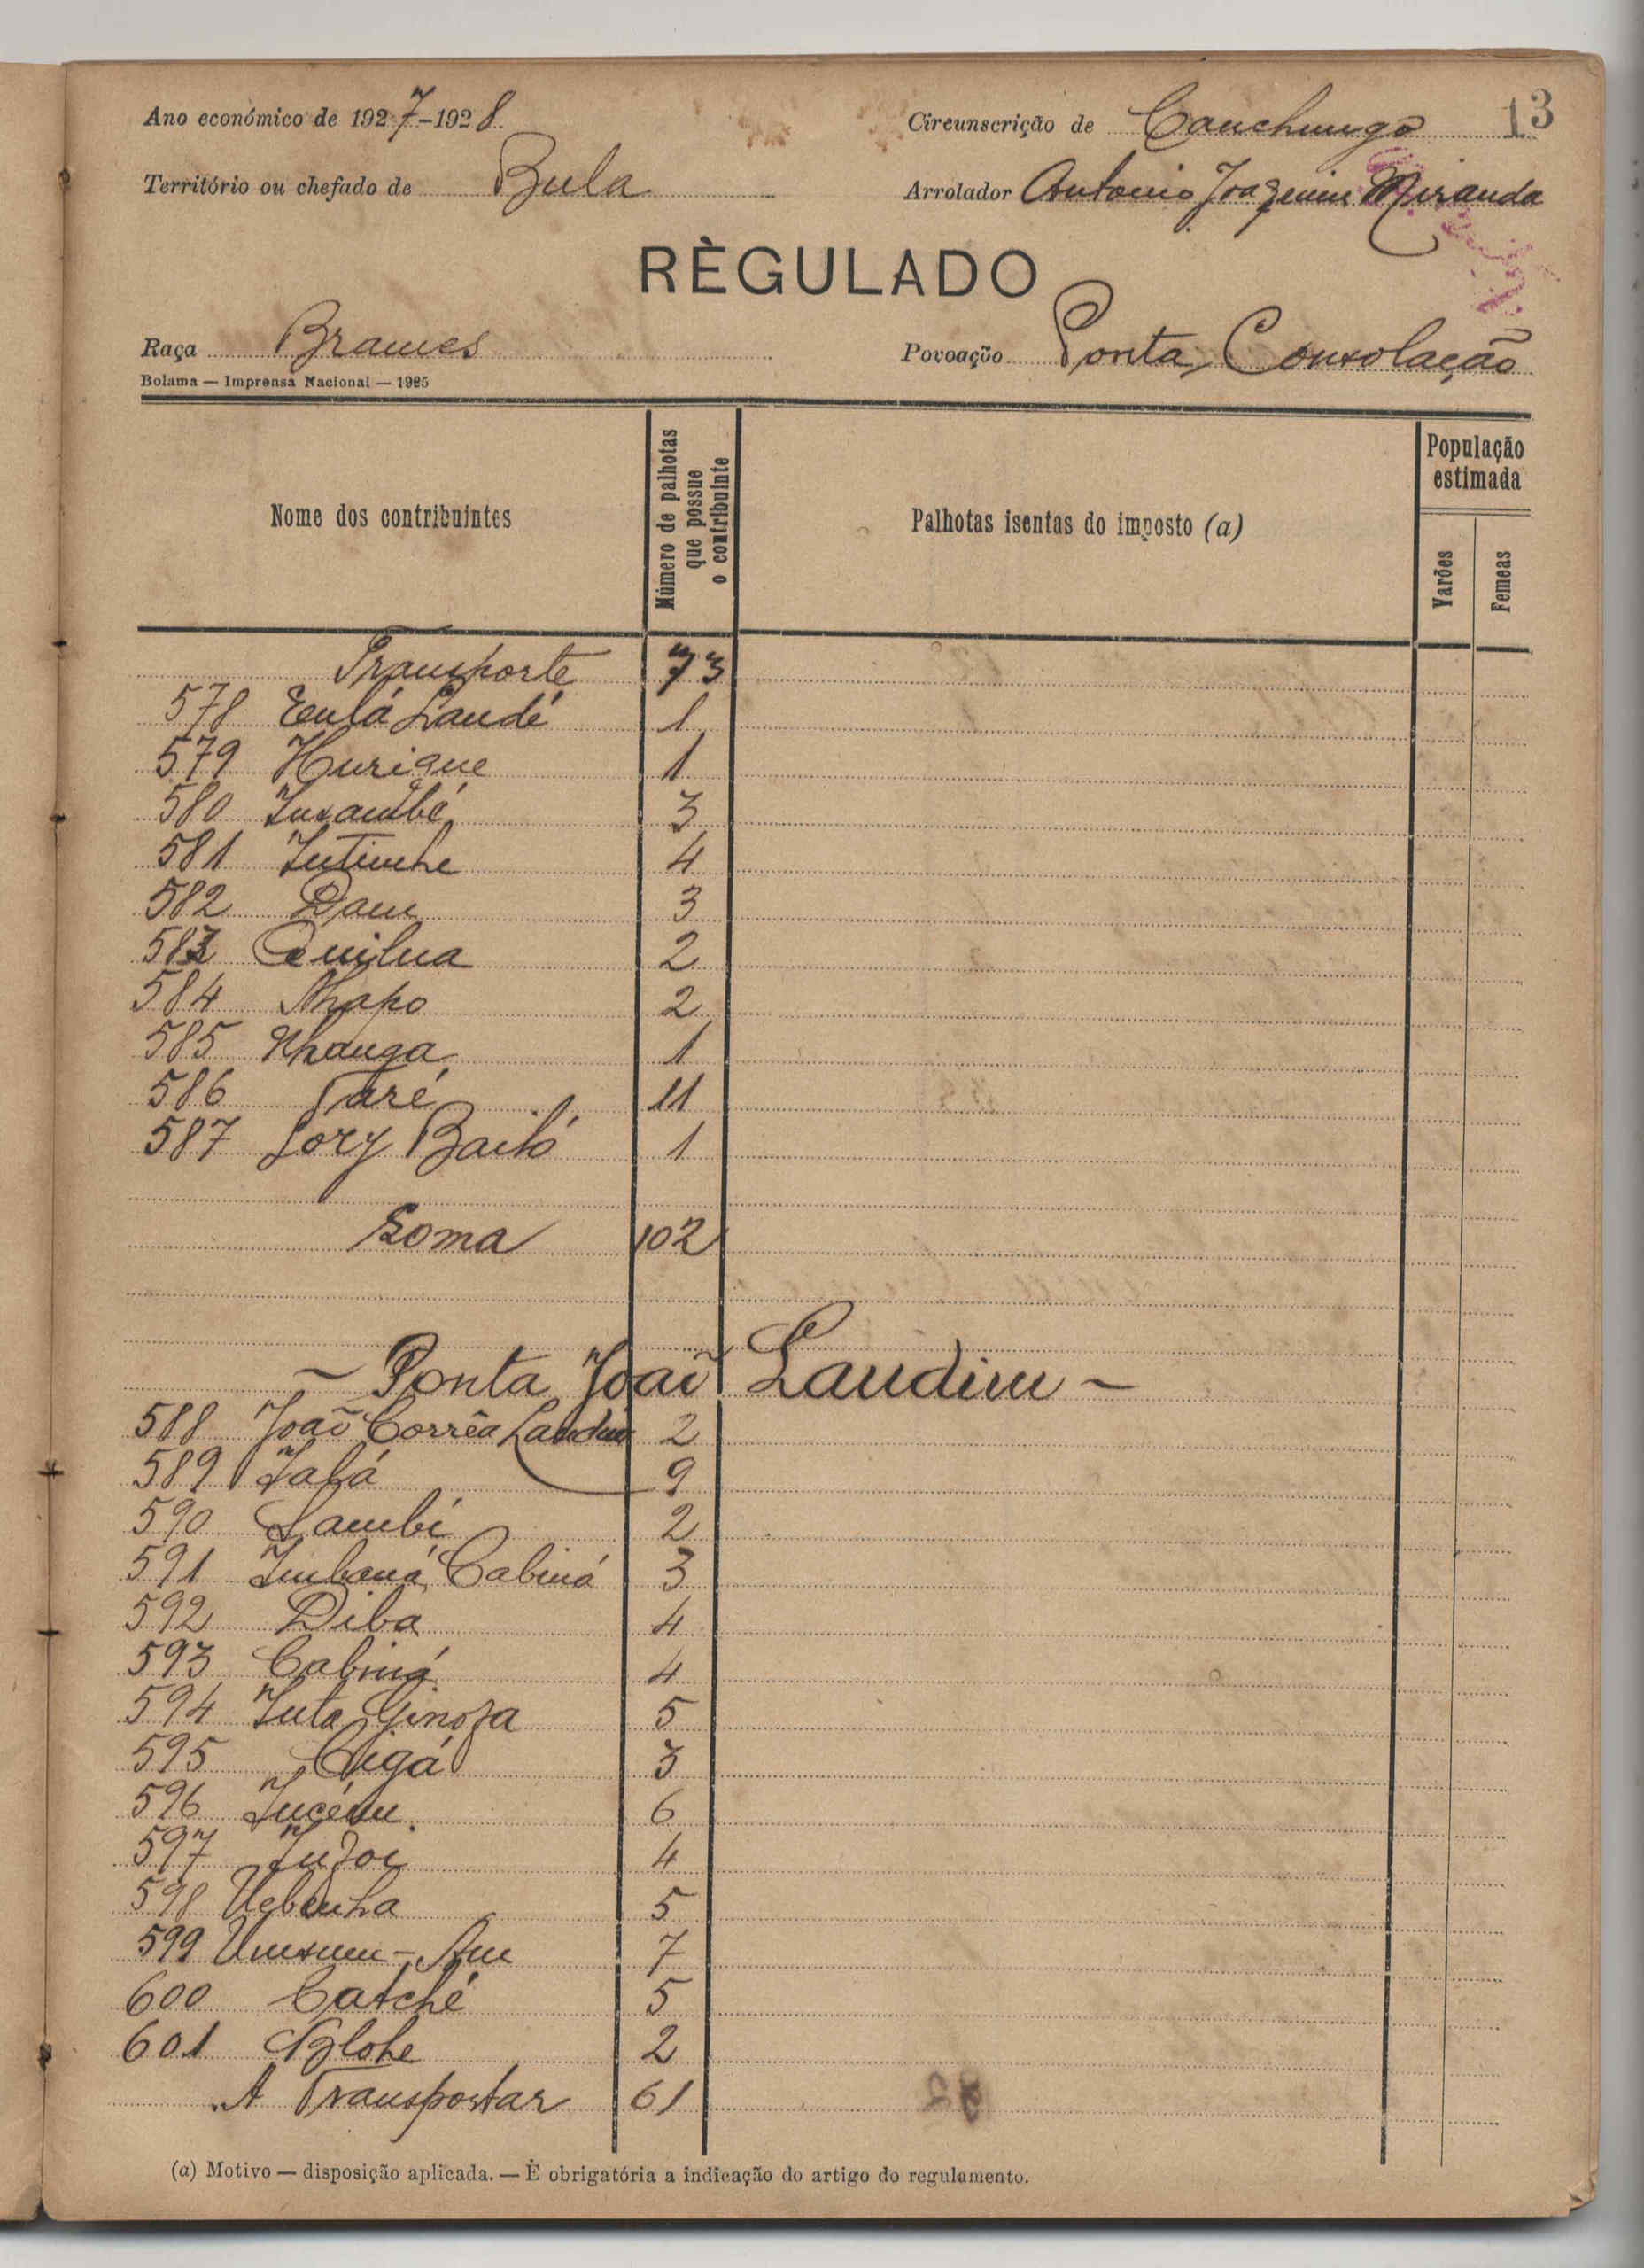 13
Ano económico de 1927-1928
Circunscrição de Canchungo
Território ou chefado de Bula
Arrolador Antonio Joaquim Miranda
RÈGULADO
Raça Brames
Povoação Ponta Consolação
Bolama — Imprensa Nacional — 1925
Nome dos contribuintes
Número de palhotas que possue o contribuinte
Palhotas isentas do imposto (a)
População estimada
Varões
Femeas
Transporte 73
578 Landé 1
579 Hurique 1
580 3
581 4
582 Dam 3
583 Quilua 2
584 Nhapo 2
585 Nhanga 1
586 Taré 11
587 Lory Bailó 1
Soma 102
- Ponta João Landim -
588 João Corrêa Landim 2
589 9
590 Lambi 2
591 Cabiná 3
592 Diba 4
593 Cabiná 4
594 5
595 Cigá 3
596 6
597 4
598 5
599 7
600 Catché 5
601 2
A Transportar 61
(a) Motivo — disposição aplicada. — È obrigatória a indicação do artigo do regulamento.